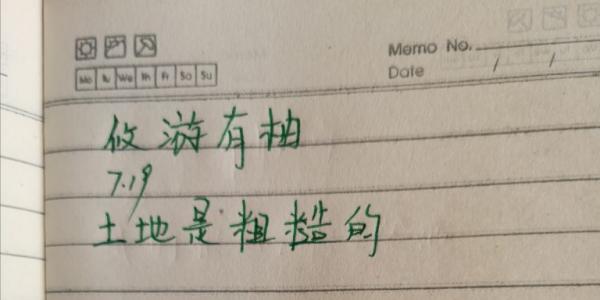 Memo No.
Mo Tu We Th Fr Sa Su
Date / /
攸游有柚
7.19
土地是粗糙的